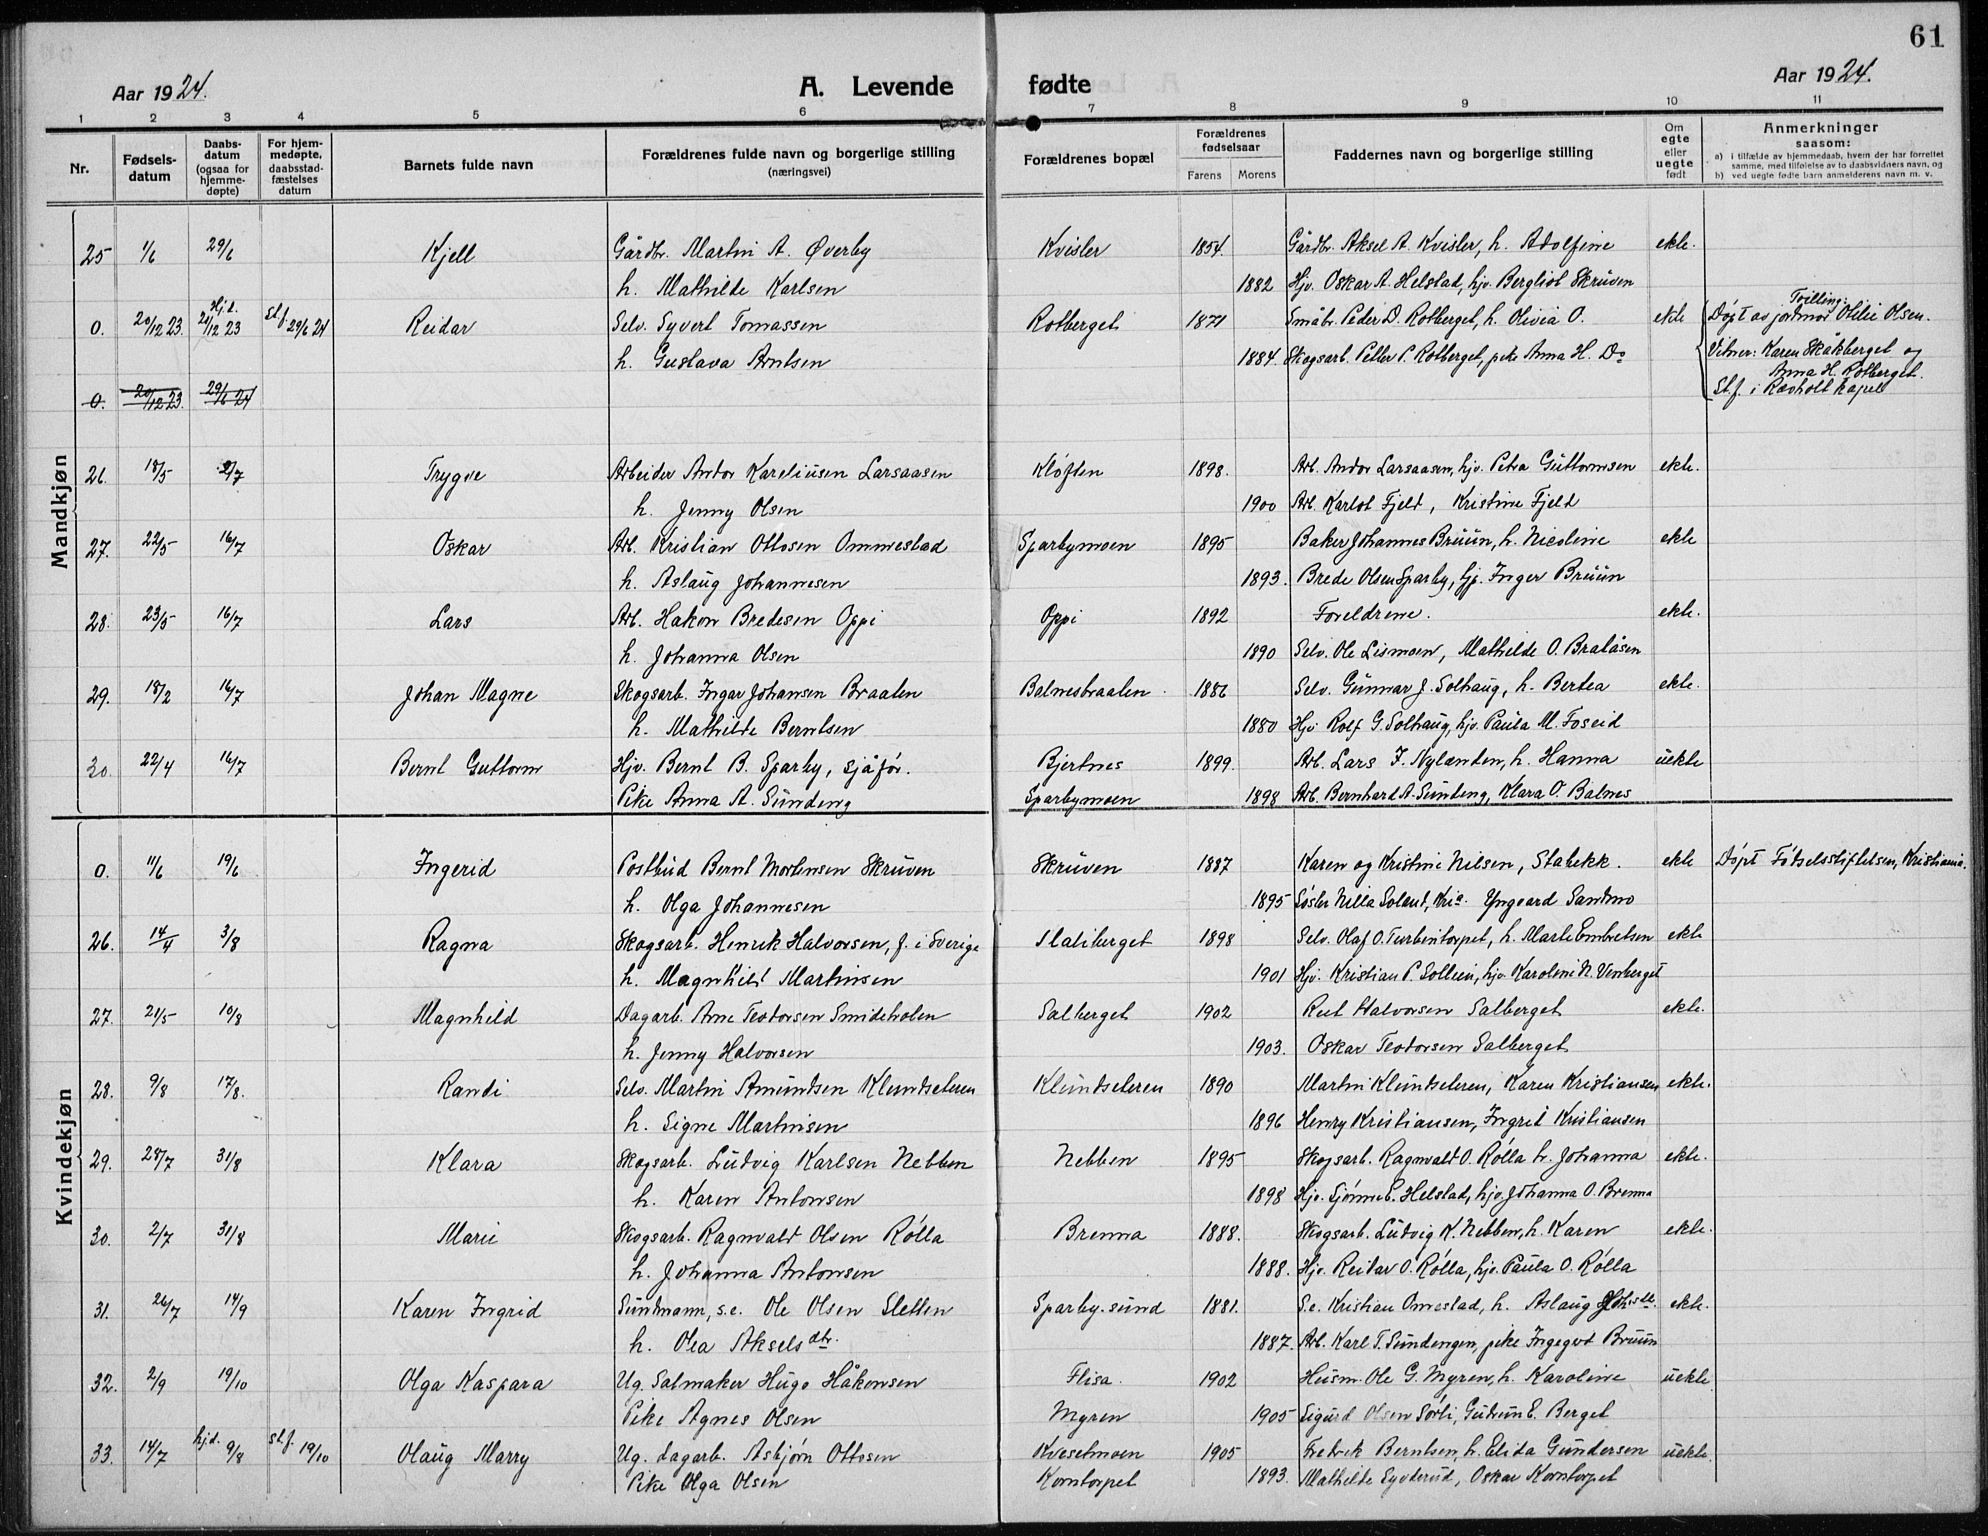 61
Aar 1924. A. Levende fødte Aar 1924.
1 2 3 4 5 6 7 8 9 10 11
Nr. Fødsels-datum Daabs-datum (ogsaa for hjemme-døpte) For hjem-medøpte, daabsstad-fæstelses datum Barnets fulde navn Forældrenes fulde navn og borgerlige stilling (næringsvei) Forældrenes bopæl Forældrenes fødselsaar Farens Morens Faddernes navn og borgerlige stilling Om egte eller uegte født Anmerkninger saasom: a) i tilfælde av hjemmedaab, hvem der har forrettet samme, med tilføielse av to daabsvidners navn, og b) ved uegte fødte barn anmelderens navn m. v.
Mandkjøn
25 1/6 29/6 Kjell Gårdbr. Martin A. Øverby Kvisler 1854. Gårdbr. Aksel A. Kvisler, h. Adolfine ekte.
h. Mathilde Karlsen 1882 Hjv. Oskar A. Helstad, hjv. Bergliot Skruven
0. 20/12 23. Hj.d. 21/12 23 St.f. 29/6 24 Reidar Selv. Syvert Tomassen Rotberget 1871 Småbr. Peder D. Rotberget, h. Olivia O. ekte Tvilling. Døpt av jordmor Otilie Olsen.
h. Gustava Arntsen 1884. Skogsarb. Petter P. Rotberget, pike Anna H. Do Vitner: Karen Skåkberget og Anna H. Rotberget.
0. 20/12 23. 29/6 24 St.f. i Ravholt kapel
26. 18/5 2/7 Trygve Arbeider Andor Kareliusen Larsaasen Kløften 1898. Arb. Andor Larsaasen, hjv. Petra Guttormsen ekte.
h. Jenny Olsen 1900 Arb. Karlot Fjeld, Kristine Fjeld
27. 22/5 16/7 Oskar Arb. Kristian Ottosen Ommestad Sparbymoen 1895 Baker Johannes Bruun, h. Nicoline ekte
h. Aslaug Johannesen 1893. Brede Olsen Sparby, hj. Inger Bruun
28. 23/5 16/7 Lars Arb. Hakon Bredesen Oppi Oppi 1892 Foreldrene. ekte.
h. Johanna Olsen 1890 Selv. Ole Lismoen, Mathilde O. Bratåsen
29. 18/2 16/7 Johan Magne Skogsarb. Ingar Johansen Braaten Balnesbraaten 1886 Selv. Gunnar J. Solhaug, h. Bertea ekte.
h. Mathilde Berntsen 1880 Hjv. Rolf G. Solhaug, hjv. Paula M. Foseid
30. 22/4 16/7 Bernt Guttorm Hjv. Bernt B. Sparby, sjåfør. Bjertnes 1899. Arb. Lars F. Nylænden, h. Hanna uekte
Pike Anna A. Sundeng Sparbymoen 1898 Arb. Bernhard A. Sundeng, Klara O. Balnes
Kvindekjøn
0. 11/6 19/6 Ingerid Postbud Bernt Mortensen Skruven Skruven 1887 Karen og Kristine Nilsen, Stabekk. ekte Døpt Fødselsstiftelsen, Kristiania.
h. Olga Johannesen 1895 Søster Nilla Solant, Kria. Yngvard Sandmo
26. 14/4 3/8 Ragna Skogsarb. Henrik Halvorsen, f. i Sverige Slatiberget 1898 Selv. Olaf O. Turbintorpet, h. Marte Embretsen ekte
h. Magnhild Martinsen 1901 Hjv. Kristian P. Sollien, hjv. Karoline N. Venberget
27. 21/5 10/8 Magnhild Dagarb. Arne Teodorsen Smidetrolen Salberget 1902 Rut Halvorsen Salberget ekte.
h. Jenny Halvorsen 1903. Oskar Teodorsen Salberget
28. 9/8 17/8. Randi Selv. Martin Amundsen Klundseteren Klundseteren 1890 Martin Klundseteren, Karen Kristiansen ekte.
h. Signe Martinsen 1896 Henry Kristiansen, Ingrid Kristiansen
29. 28/7 31/8 Klara Skogsarb. Ludvig Karlsen Nebben Nebben 1895 Skogsarb. Ragnvald O. Rølla h. Johanna ekte.
h. Karen Antonsen 1898 Hjv. Sjønne E. Helstad, hjv. Johanna O. Brenna
30. 2/7 31/8 Marie Skogsarb. Ragnvald Olsen Rølla Brenna 1888. Skogsarb. Ludvig K. Nebben, h. Karen ekte.
h. Johanna Antonsen 1888. Hjv. Reidar O. Rølla, hjv. Paula O. Rølla
31. 26/7 14/9 Karen Ingrid Sundmann, s.e. Ole Olsen Sletten Sparby-sund 1881. S.e. Kristian Omestad, h. Aslaug Johsdtr. ekte.
h. Olea Akselsdtr. 1887. Arb. Karl T. Sundengen, pike Ingegerd Bruun
32. 2/9 19/10 Olga Kaspara Ug. Salmaker Hugo Håkonsen Flisa. 1902 Husm. Ole G. Myren, h. Karoline uekte
Pike Agnes Olsen Myren 1905 Sigurd Olsen Sørli, Gudrun E. Berget
33. 14/7 hjd. 9/8 st.f. 19/10 Olaug Marry Ug. dagarb. Asbjørn Ottosen Kvesetmoen 1905 Fredrik Berntsen, h. Elida Gundersen uekte
Pike Olga Olsen Korntorpet 1893. Mathilde Syverud, Oskar Korntorpet